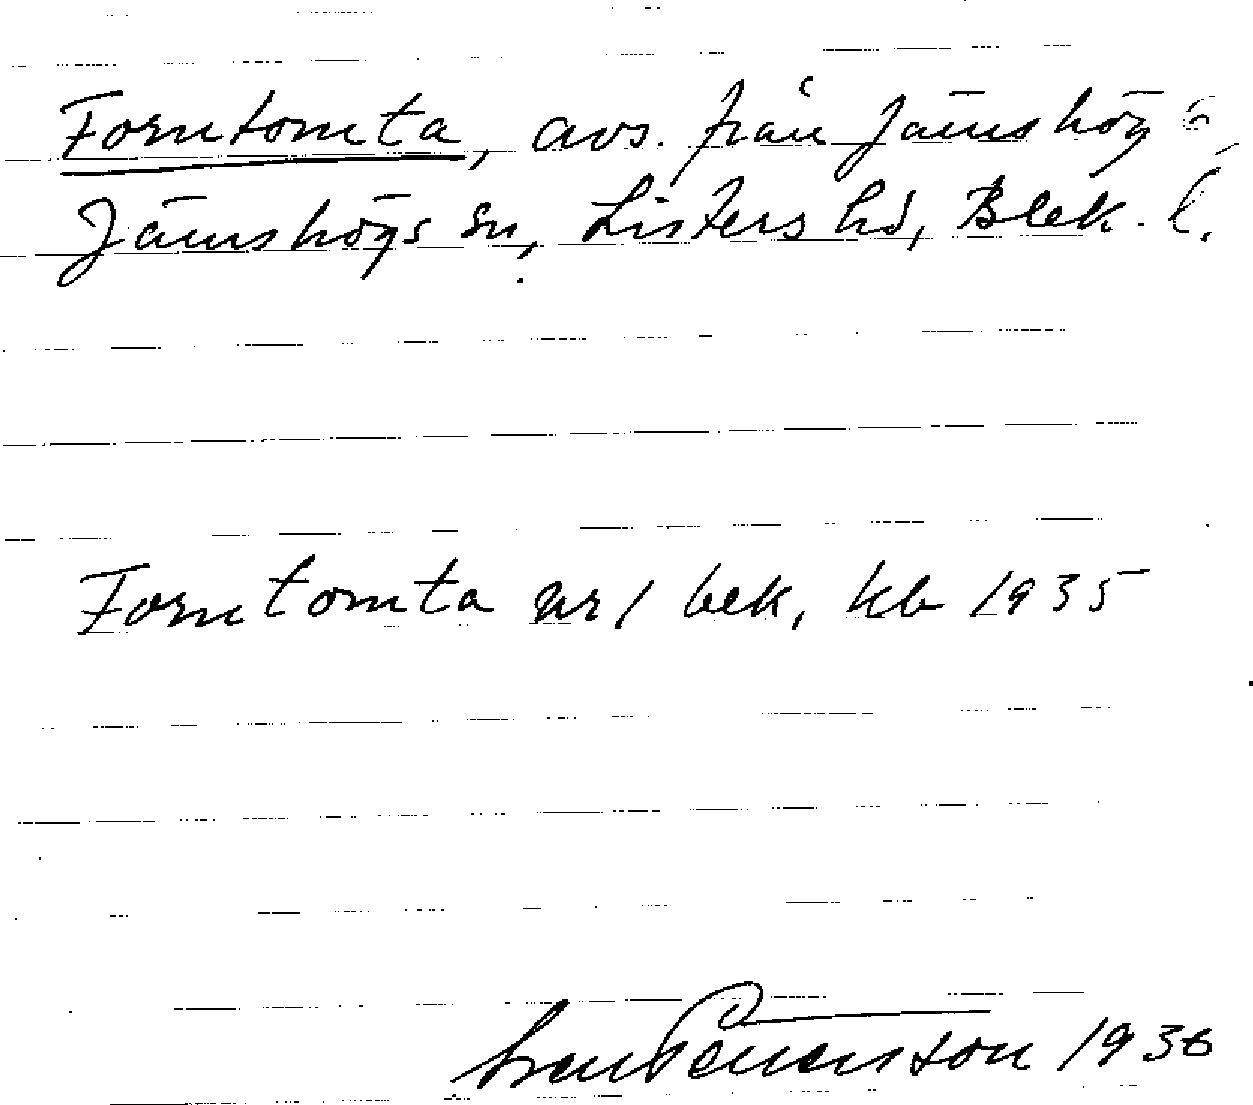 Forntomta, avs. från Jämshög 6
Jämshögs sn, Listers hd, Blek. l.
Forntomta nr 1 bek, kb 1935
1936